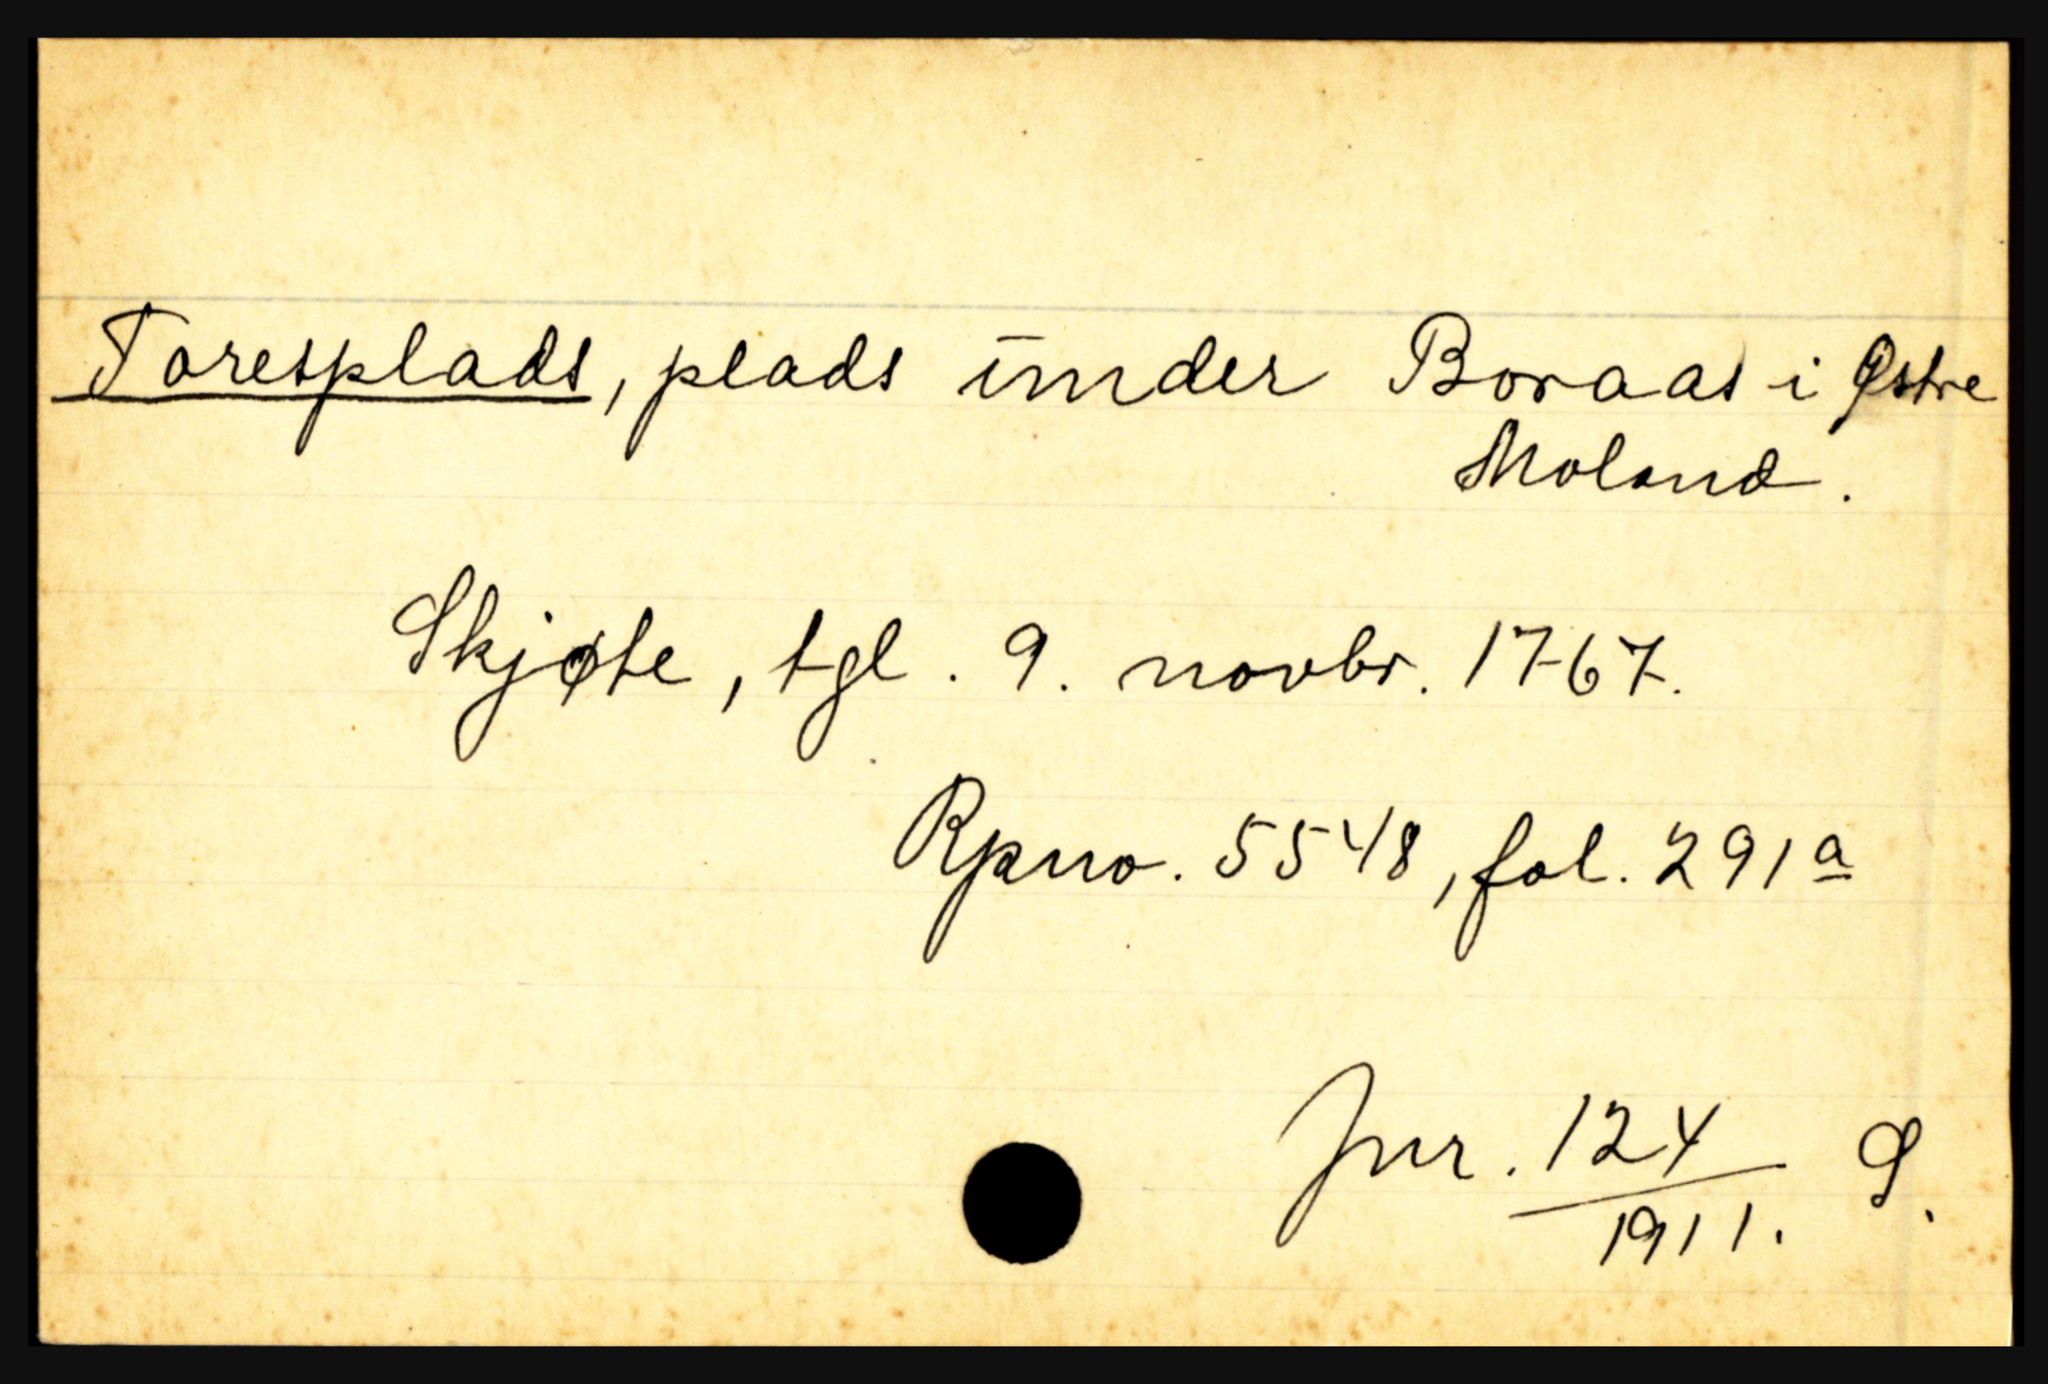 Toresplads, plads under Boraas i Østre
Moland.
Skjøte, tgl. 9. novbr. 1767.
Rpno. 5548, fol. 291a
Jnr. 124
1911. S.